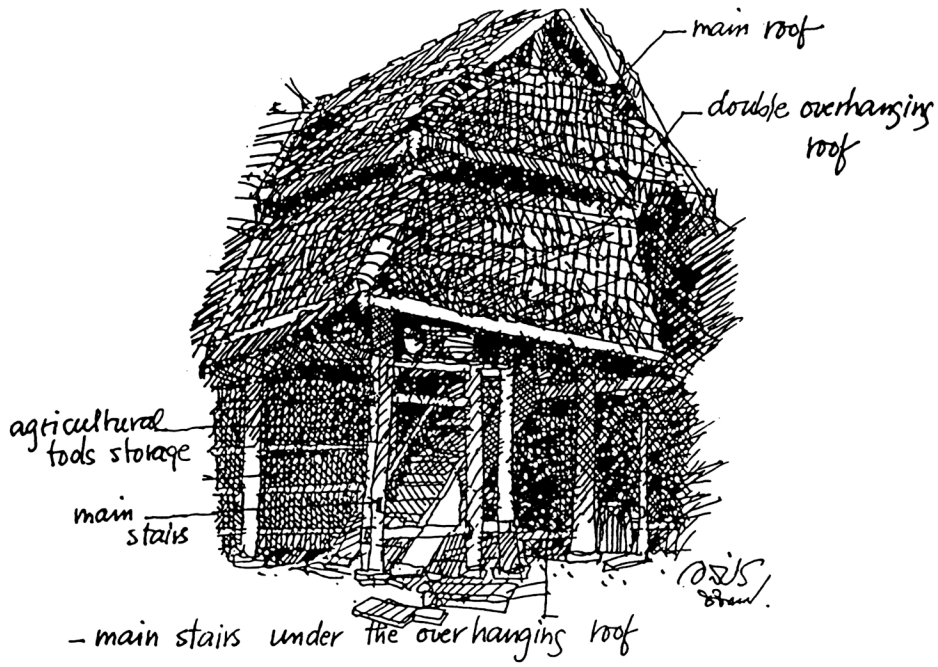 main roof
double overhanging
roof
agricultural
tools storage
main
stairs
- main stairs under the overhanging roof